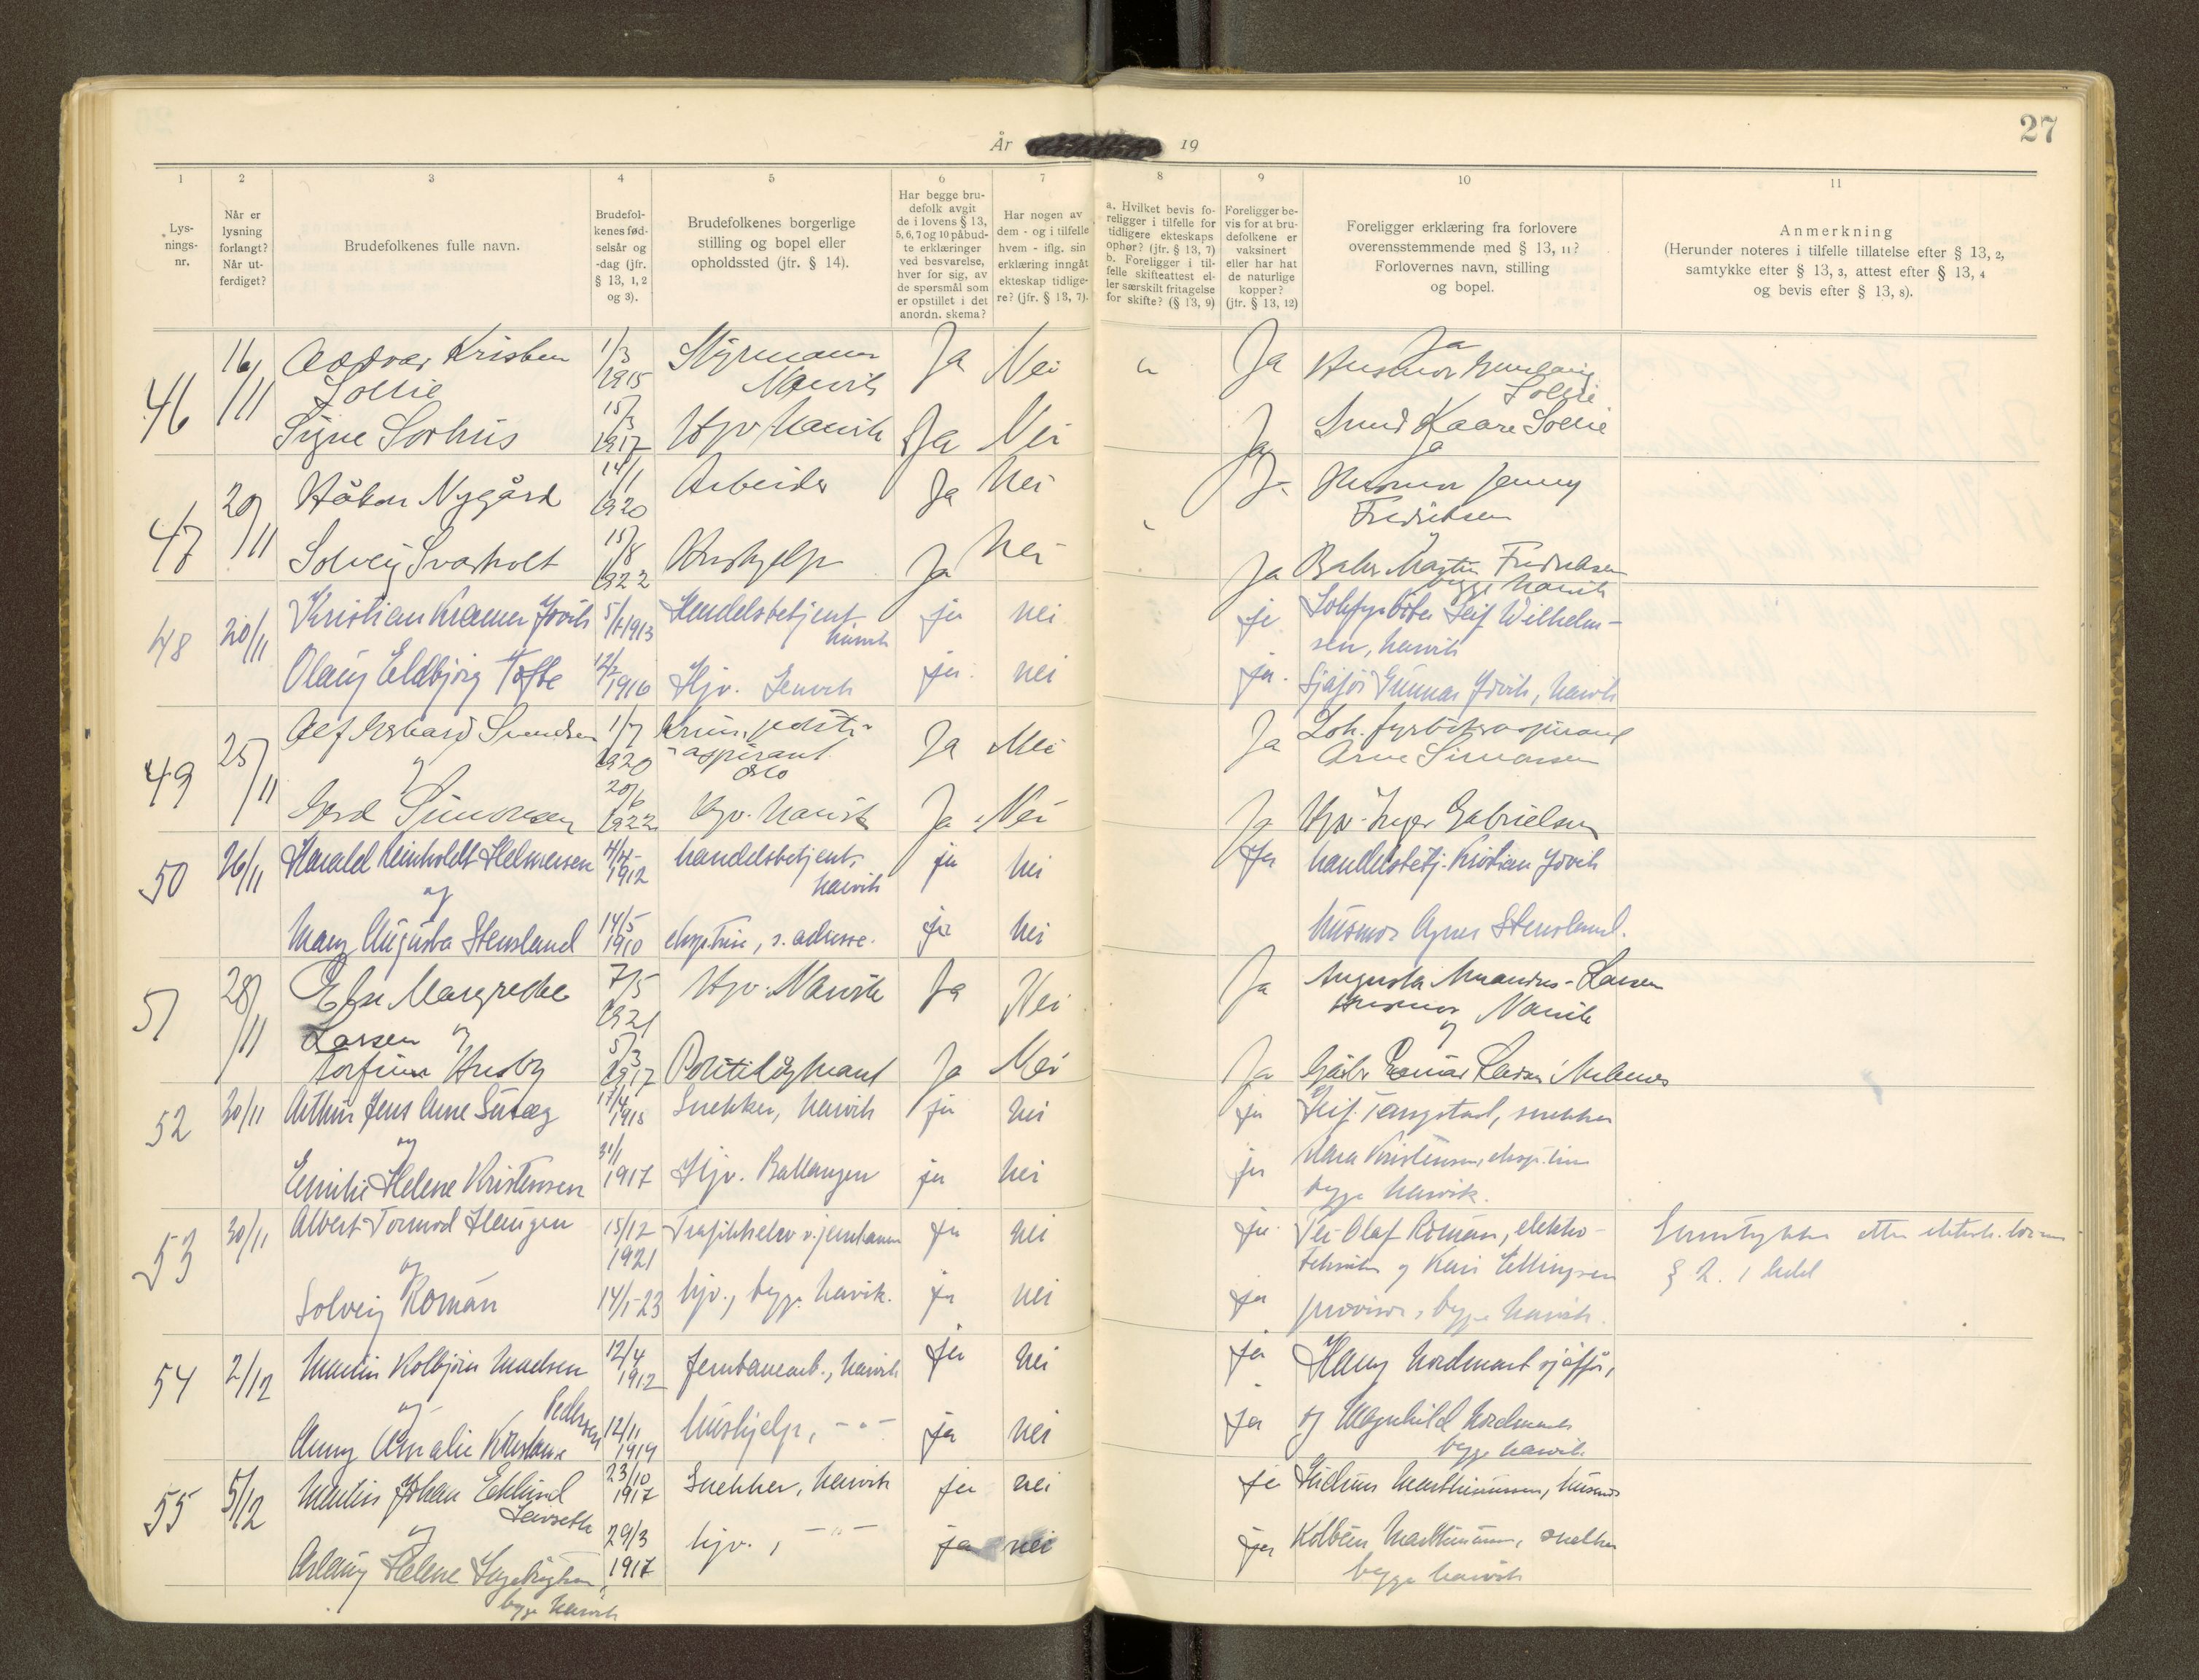 27
År 19
1 2 3 4 5 6 7 8 9 10 11
Lys-
nings-
nr.
Når er
lysning
forlangt?
Når ut-
ferdiget?
Brudefolkenes fulle navn.
Brudefol-
kenes fød-
selsår og
-dag (jfr.
§ 13, 1, 2
og 3).
Brudefolkenes borgerlige
stilling og bopel eller
opholdssted (jfr. § 14).
Har begge bru-
defolk avgit
de i lovens § 13,
5, 6, 7 og 10 påbud-
te erklæringer
ved besvarelse,
hver for sig, av
de spørsmål som
er opstillet i det
anordn. skema?
Har nogen av
dem - og i tilfelle
hvem - iflg. sin
erklæring inngåt
ekteskap tidlige-
re? (jfr. § 13, 7).
a. Hvilket bevis fo-
religger i tilfelle for
tidligere ekteskaps
ophør? (jfr. § 13, 7)
b. Foreligger i til-
felle skifteattest el-
ler særskilt fritagelse
for skifte? (§ 13, 9)
Foreligger be-
vis for at bru-
defolkene er
vaksinert
eller har hat
de naturlige
kopper?
(jfr. § 13, 12)
Foreligger erklæring fra forlovere
overensstemmende med § 13, 11?
Forlovernes navn, stilling
og bopel.
Anmerkning
(Herunder noteres i tilfelle tillatelse efter § 13, 2,
samtykke efter § 13, 3, attest efter § 13, 4
og bevis efter § 13, 8).
46 16/11 Kristen 1/3 1915 Styrmann Ja Nei Ja Ja
Sollie Narvik Husmor Sollie
Signe Sørhus 15/3 1917 Hjv Narvik Ja Nei Ja Kaare Sollie
47 20/11 Håkon Nygård 14/1 1920 Arbeider Ja Nei Ja Husmor Jenny
Fredriksen
Solveig Svartholt 15/8 1922 Hushjelp Ja Nei Ja Martin Fredriksen
begge Narvik
48 20/11 Kristian Kramer Jovik 5/1-1913 Handelsbetjent Narvik ja nei ja Lokfyrbøter Leif Wilhelm-
sen, Narvik
Olaug Eldbjørg Tofte 12/2 1916 Hjv. Lenvik ja nei ja Sjåfør Gunnar Jovik, Narvik
49 25/11 Alf Svendsen 1/7 1920 Krim. politi-
aspirant Oslo Ja Nei Ja Lok. fyrbøteraspirant
og Arne Simonsen
Gerd Simonsen 20/6 1922 Hjv. Narvik Ja Nei Ja Hjv. Inger Gabrielsen
50 26/11 Harald Reinholdt Helmersen 4/4-1912 handelsbetjent, Narvik ja nei ja handelsbetj. Kristian Jovik
og
Mary Augusta Stensland 14/5 1910 eksp.trise, s. adresse. ja nei husmor Agnes Stensland.
51 28/11 Else Margrethe 7/5 1921 Hjv. Narvik Ja Nei Ja Augusta Larsen
Larsen og husmor Narvik
og
Torfinn Husby 5/3 1917 Ja Nei Ja Larsen
52 30/11 Arthur Jens Arne 17/4 1915 Snekker, Narvik ja nei ja Leif Tangstad, snekker
og
Emilie Helene Kristensen 31/1 1917 Hjv. Ballangen ja nei ja Kristensen, eksp.trise
begge Narvik.
53 30/11 Albert Tormod Haugen 15/12 1921 Trafikkelev v. jernbanen ja nei ja Per Olaf Roman, elektro-
og tekniker og Kari Ellingsen
Solveig Roman 14/1-23 hjv., begge Narvik. ja nei ja provisor, begge Narvik.
Samtykke etter ektesk.loven
§ 2. 1 ledd
54 2/12 Martin Kolbjørn Madsen 12/4 1912 jernbanearb., Narvik ja nei ja Harry Nordmark sjåfør,
og Pedersen
Anny Amalie Kristiane 12/11 1919 hushjelp, -"- ja nei ja og Magnhild Nordmark
begge Narvik
55 5/12 Martin Johan Eklund 23/10 1917 Snekker, Narvik ja nei ja Gudrun Marthinussen, husmor
Leirseth
og
Aslaug Helene Ingebrigtsen 29/3 1917 hjv., -"- ja nei ja Kolbein Marthinussen, snekker
begge Narvik begge Narvik